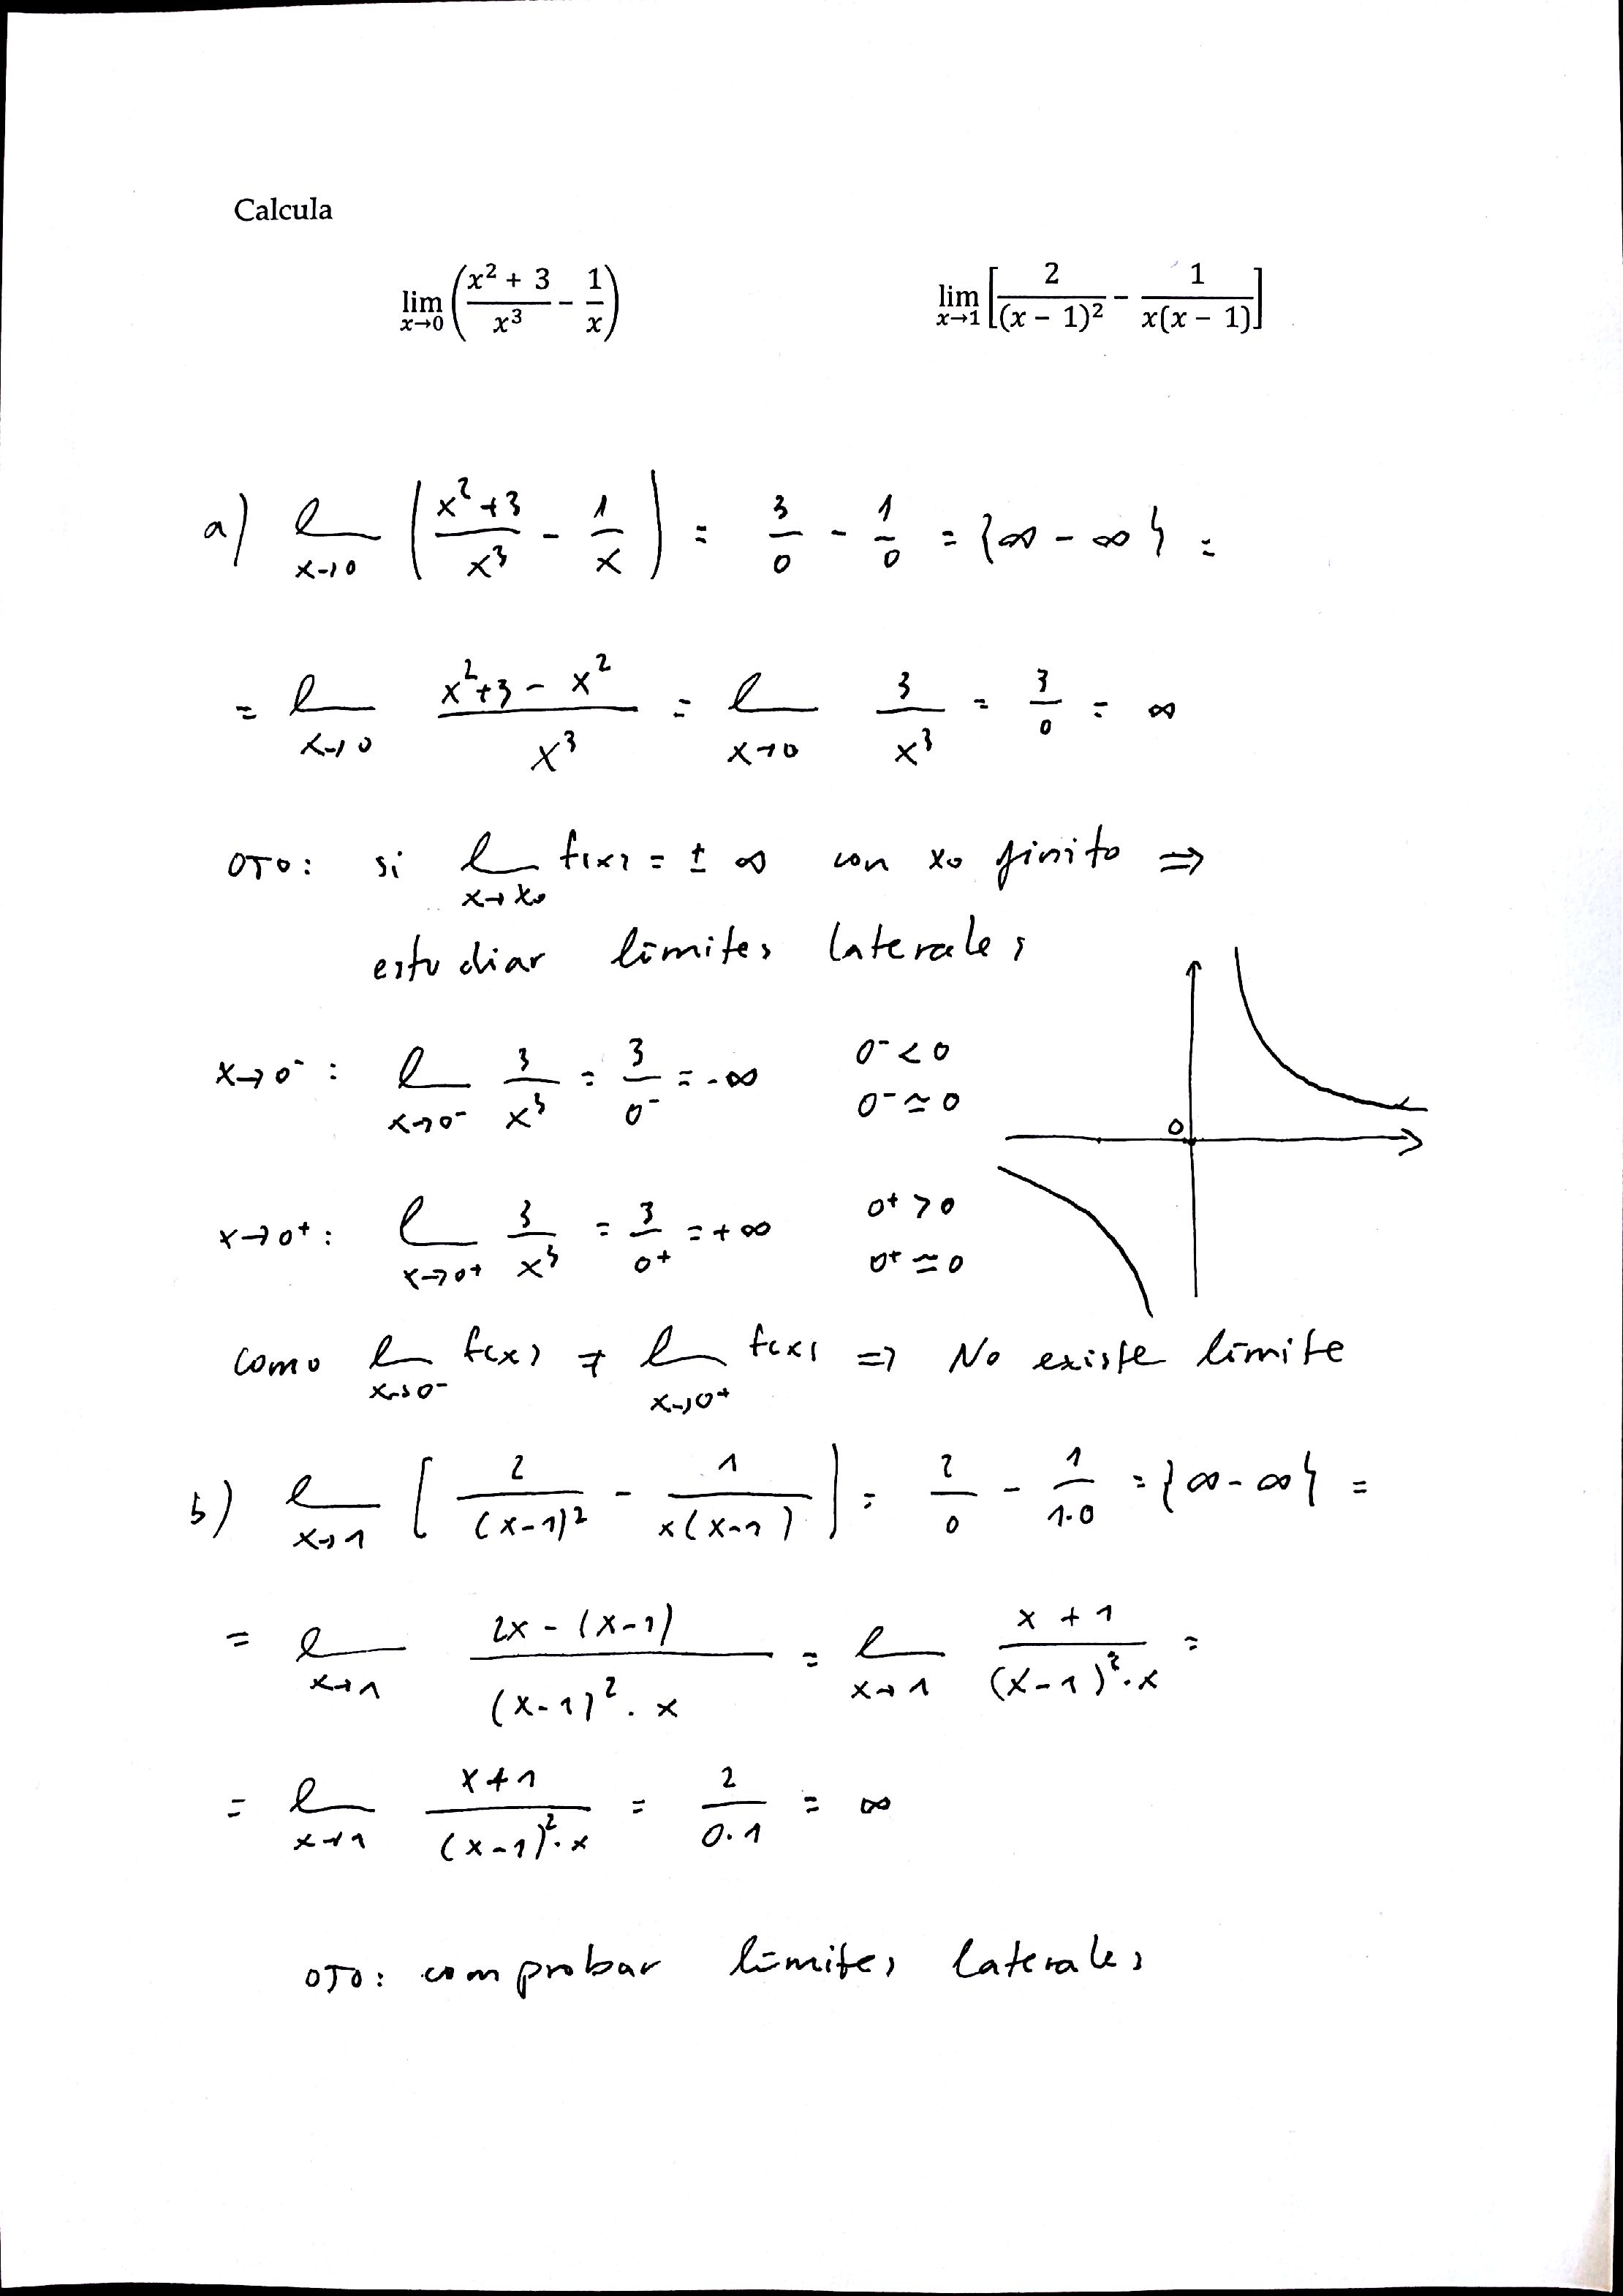 Calcula
lim x→0 (x² + 3 / x³ − 1 / x)    lim x→1 [2 / (x − 1)² − 1 / x(x − 1)]
a) l x→0 (x²+3 / x³ − 1 / x) = 3/0 − 1/0 = {∞ − ∞} =
= l x→0 x²+3 − x² / x³ = l x→0 3 / x³ = 3/0 = ∞
OJO: si l x→x₀ f(x) = ± ∞ con x₀ finito ⇒
estudiar límites laterales
x→0⁻ : l x→0⁻ 3 / x³ = 3 / 0⁻ = -∞    0⁻ < 0
0⁻ ≃ 0
0
x→0⁺ : l x→0⁺ 3 / x³ = 3 / 0⁺ = +∞    0⁺ > 0
0⁺ ≃ 0
como l x→0⁻ f(x) ≠ l x→0⁺ f(x) ⇒ No existe límite
b) l x→1 [2 / (x-1)² − 1 / x(x-1)] = 2/0 − 1 / 1·0 = {∞-∞} =
= l x→1 2x − (x-1) / (x-1)² · x = l x→1 x + 1 / (x-1)² · x =
= l x→1 x+1 / (x-1)² · x = 2 / 0·1 = ∞
OJO: comprobar límites laterales